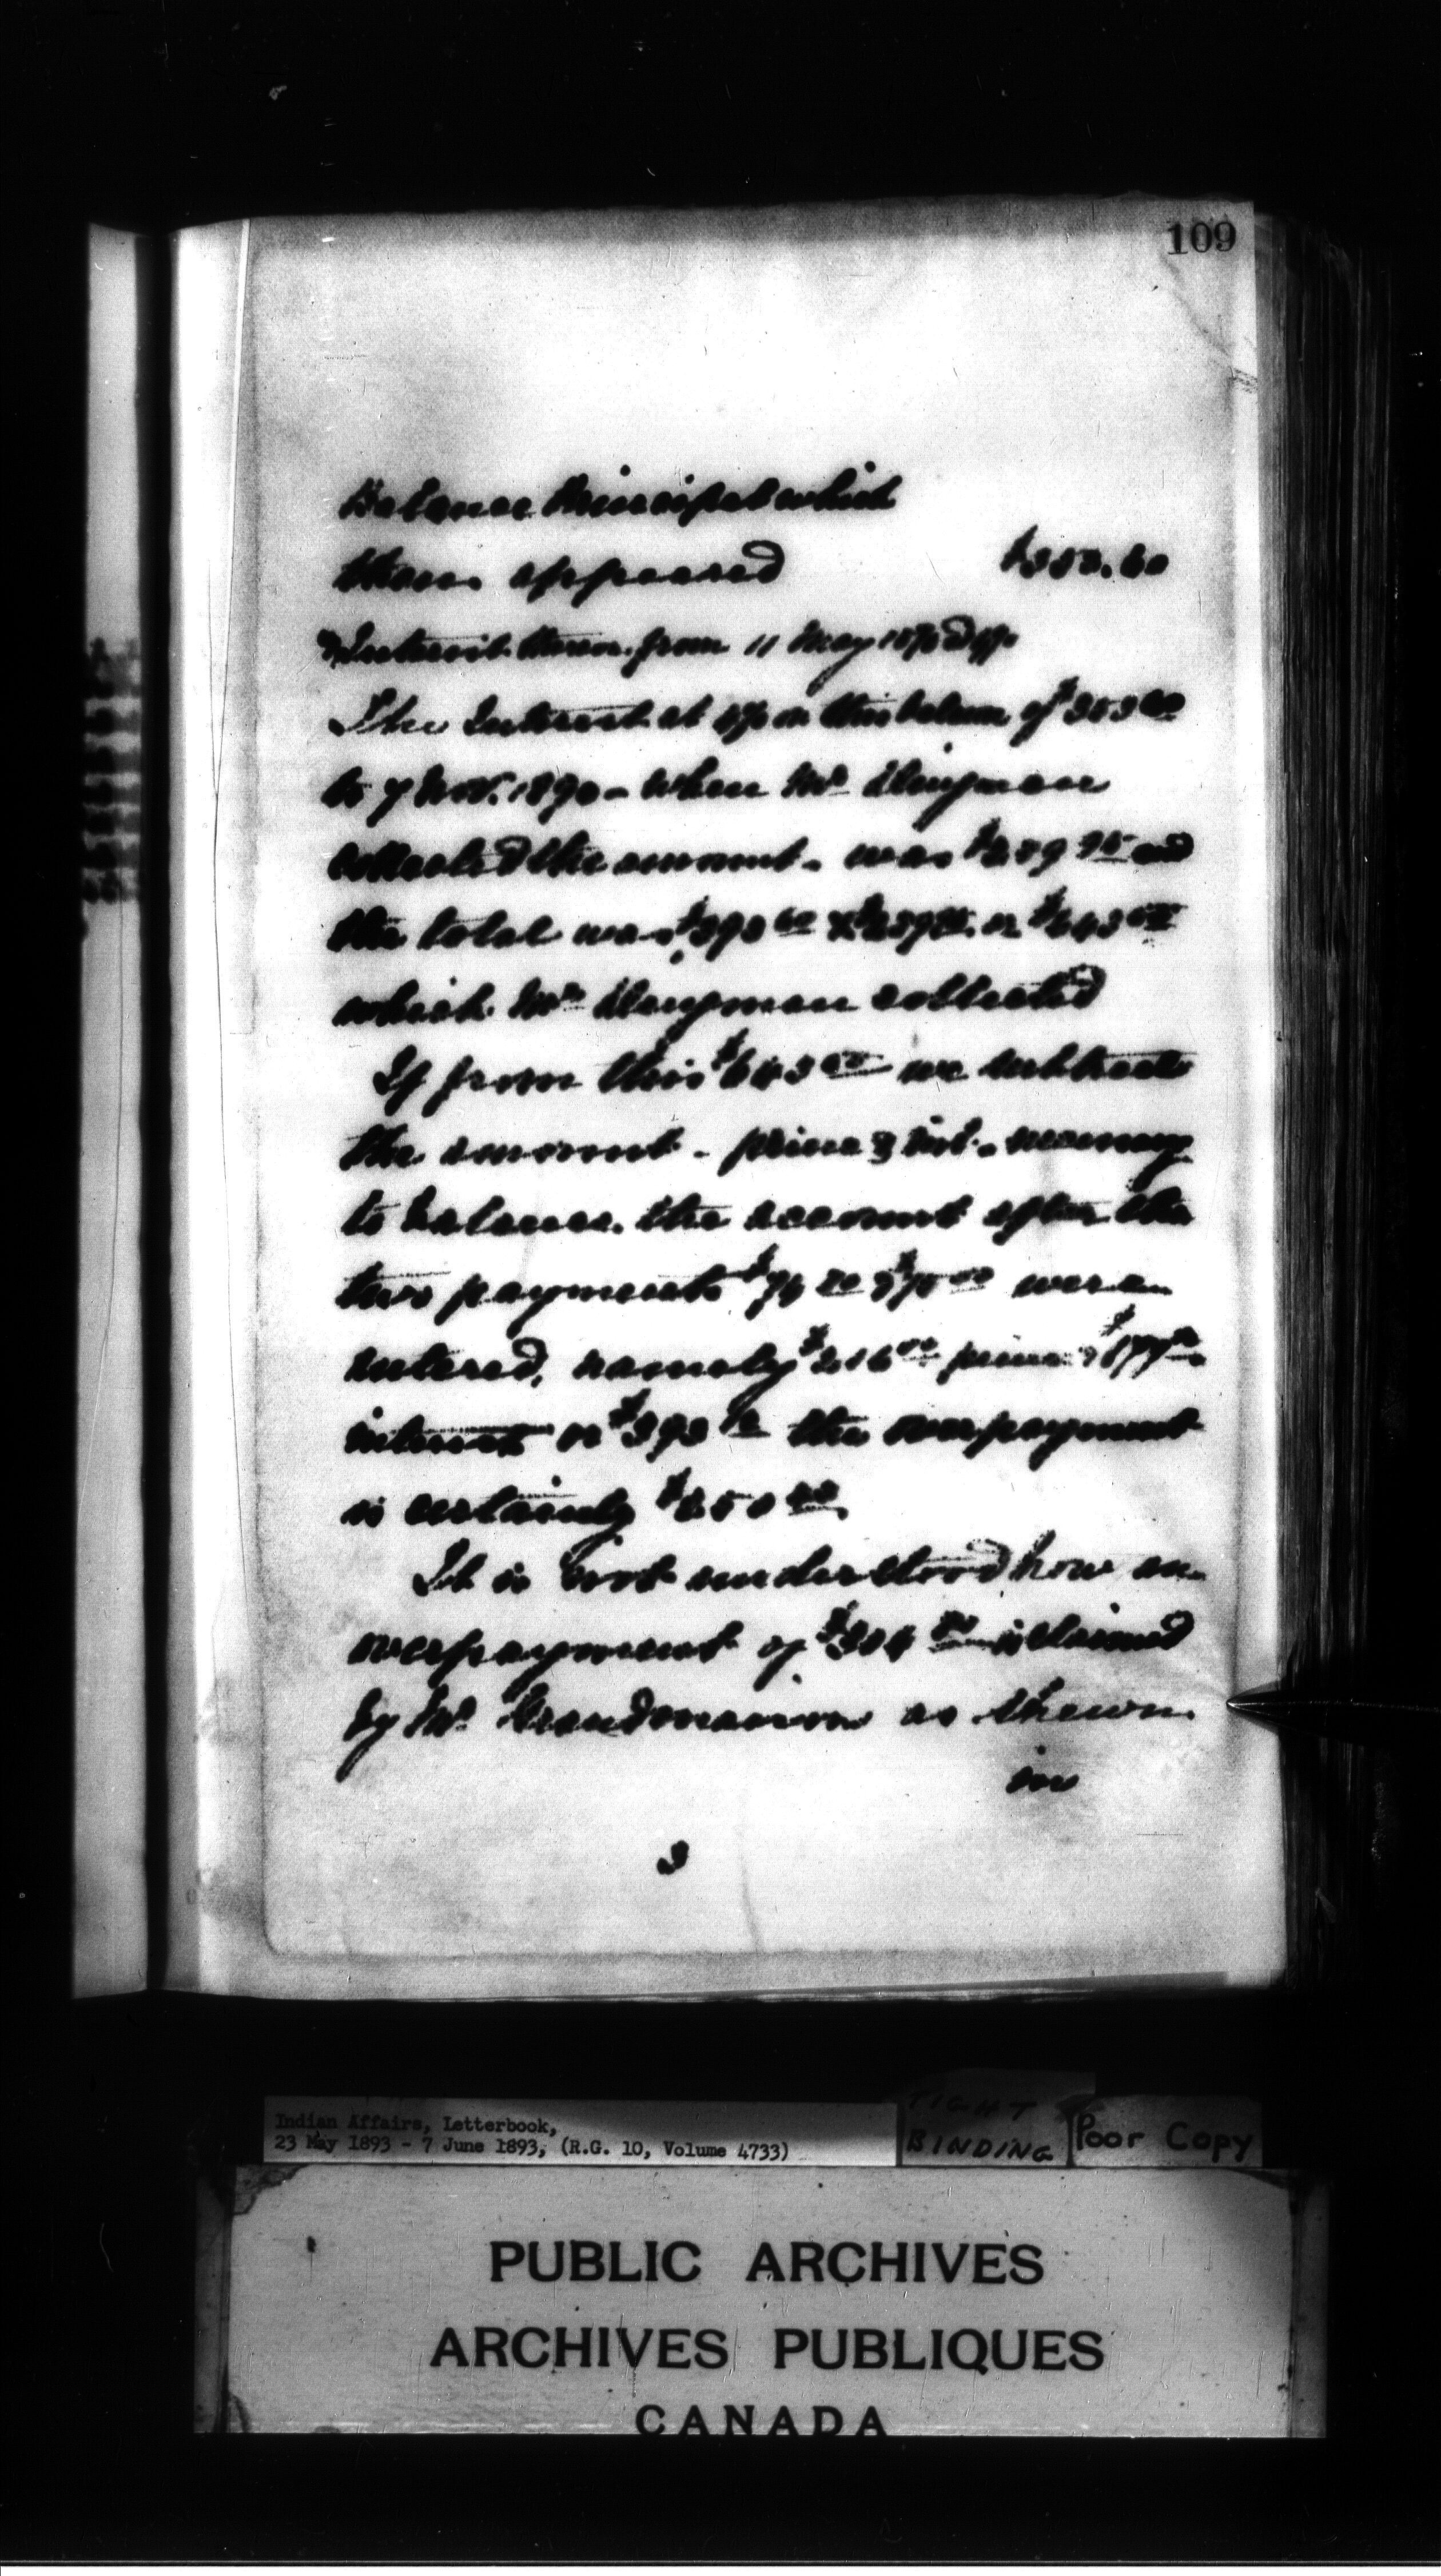 109
Balance Principal which
then appeared $353.60
Interest thereon from 11 May
The Interest at on this balance of $353 60
to 7 Nov. 1890 - when Mr Dingman
collected the amount - was and
the total was
which Mr Dingman collected
If from this $643 we subtract
the amount - princ & int. necessary
to balance the account after the
two payments were
entered, namely $216 princ &
interest or $393 the overpayment
is certainly $250
It is not understood how an
overpayment of $304 is claimed
by Mr Grandmaison as shewn
in
3
Indian Affairs, Letterbook,
23 May 1893 - 7 June 1893, (R.G. 10, Volume 4733)
TIGHT
BINDING
Poor Copy
PUBLIC ARCHIVES
ARCHIVES PUBLIQUES
CANADA